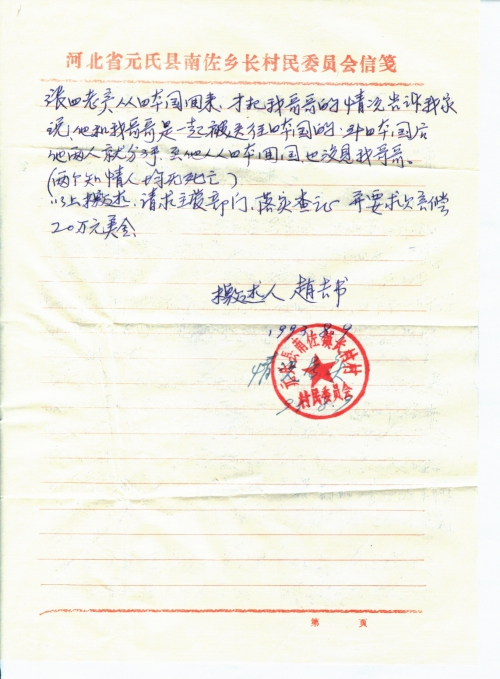 河北省元氏县南佐乡长村民委员会信笺
張四老声从日本国回来,才把我哥哥的情况告诉我家
说他和我哥哥是一起被送往日本国的,到日本国后
他两人就分手,至他从日本回国也没見我哥哥。
(两个知情人均死亡)
以上概述,请求主管部门,落实查证 并要求次倍偿
20万元美金
概述人 趙吉书
1993.8.4
元氏县南佐镇长村村
情况属实
村民委员会
第 页